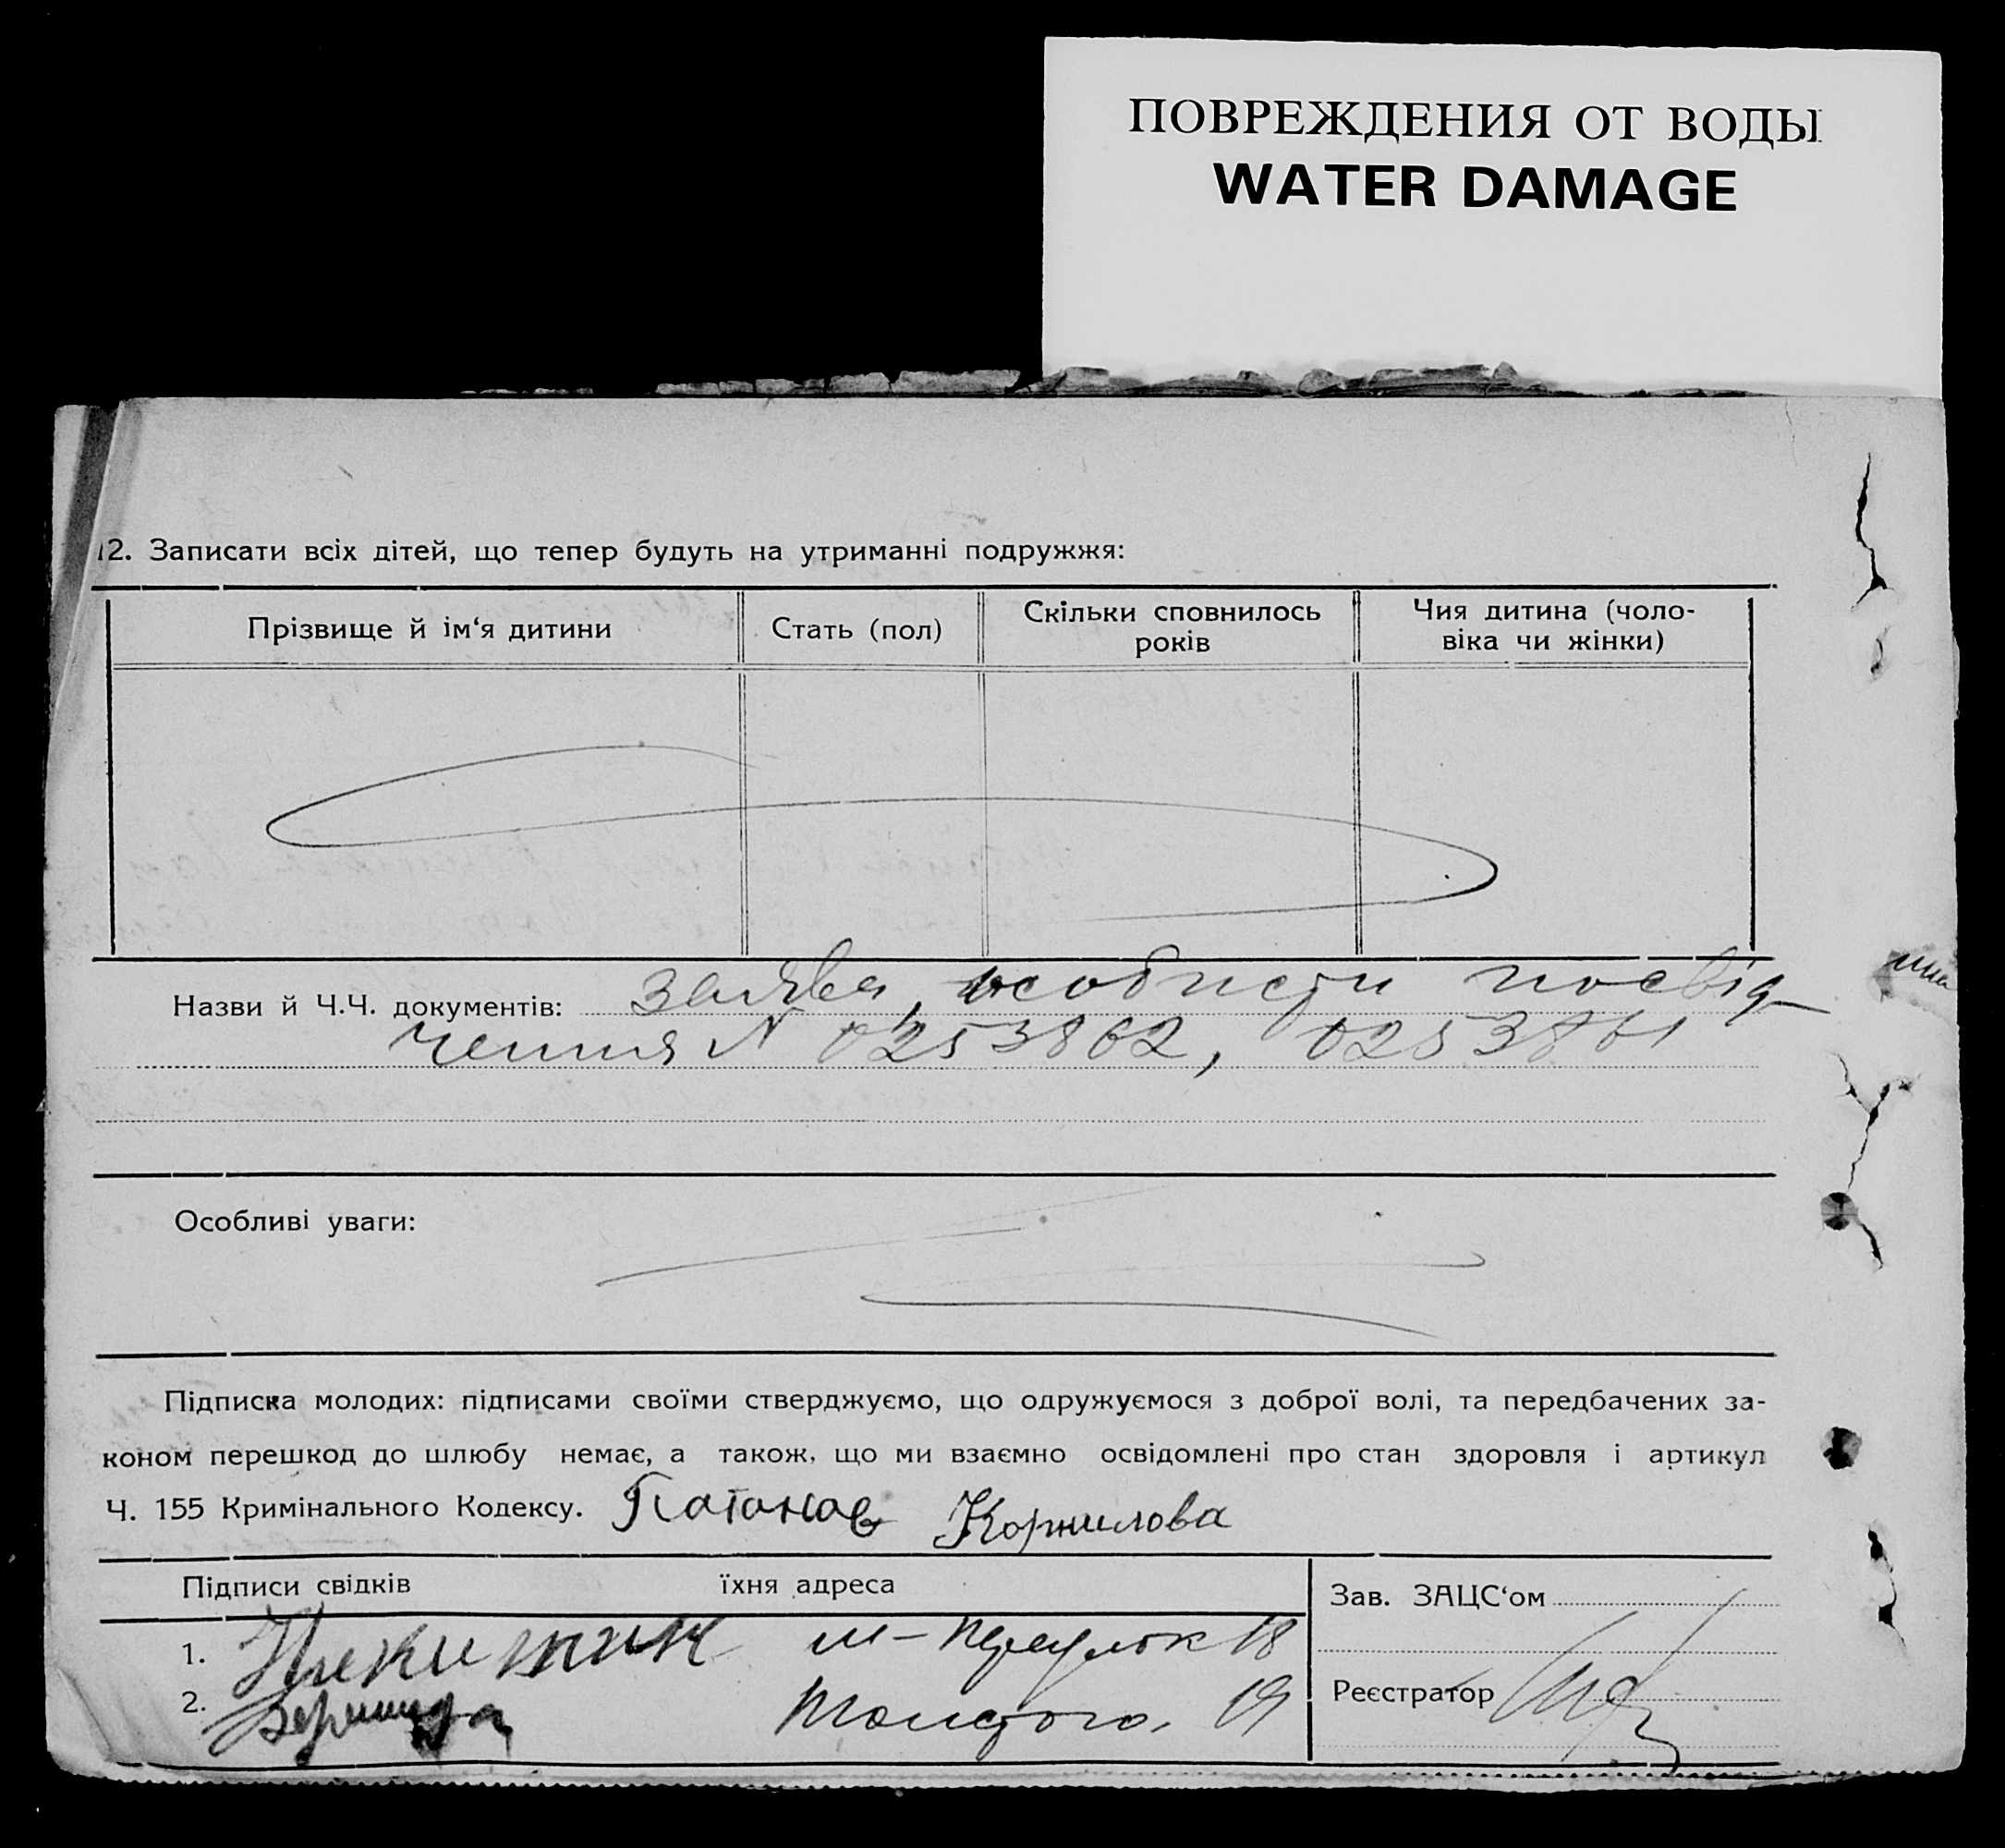 ПОВРЕЖДЕНИЯ ОТ ВОДЫ
WATER DAMAGE
12. Записати всіх дітей, що тепер будуть на утриманні подружжя:
Прізвище й ім‘я дитини
Стать (пол)
Скільки сповнилось
років
Чия дитина (чоло-
віка чи жінки)
Назви й Ч.Ч. документів: заява, особисти посвід
чення N 0253862, 0253861
Особливі уваги:
Підписка молодих: підписами своїми стверджуємо, що одружуємося з доброї волі, та передбачених за-
коном перешкод до шлюбу немає, а також, що ми взаємно освідомлені про стан здоровля і артикул
Ч. 155 Кримінального Кодексу. Патанов Корнилова
Підписи свідків їхня адреса
Зав. ЗАЦС‘ом
1. Некитюк 18
2. Толстого. 19
Реєстратор